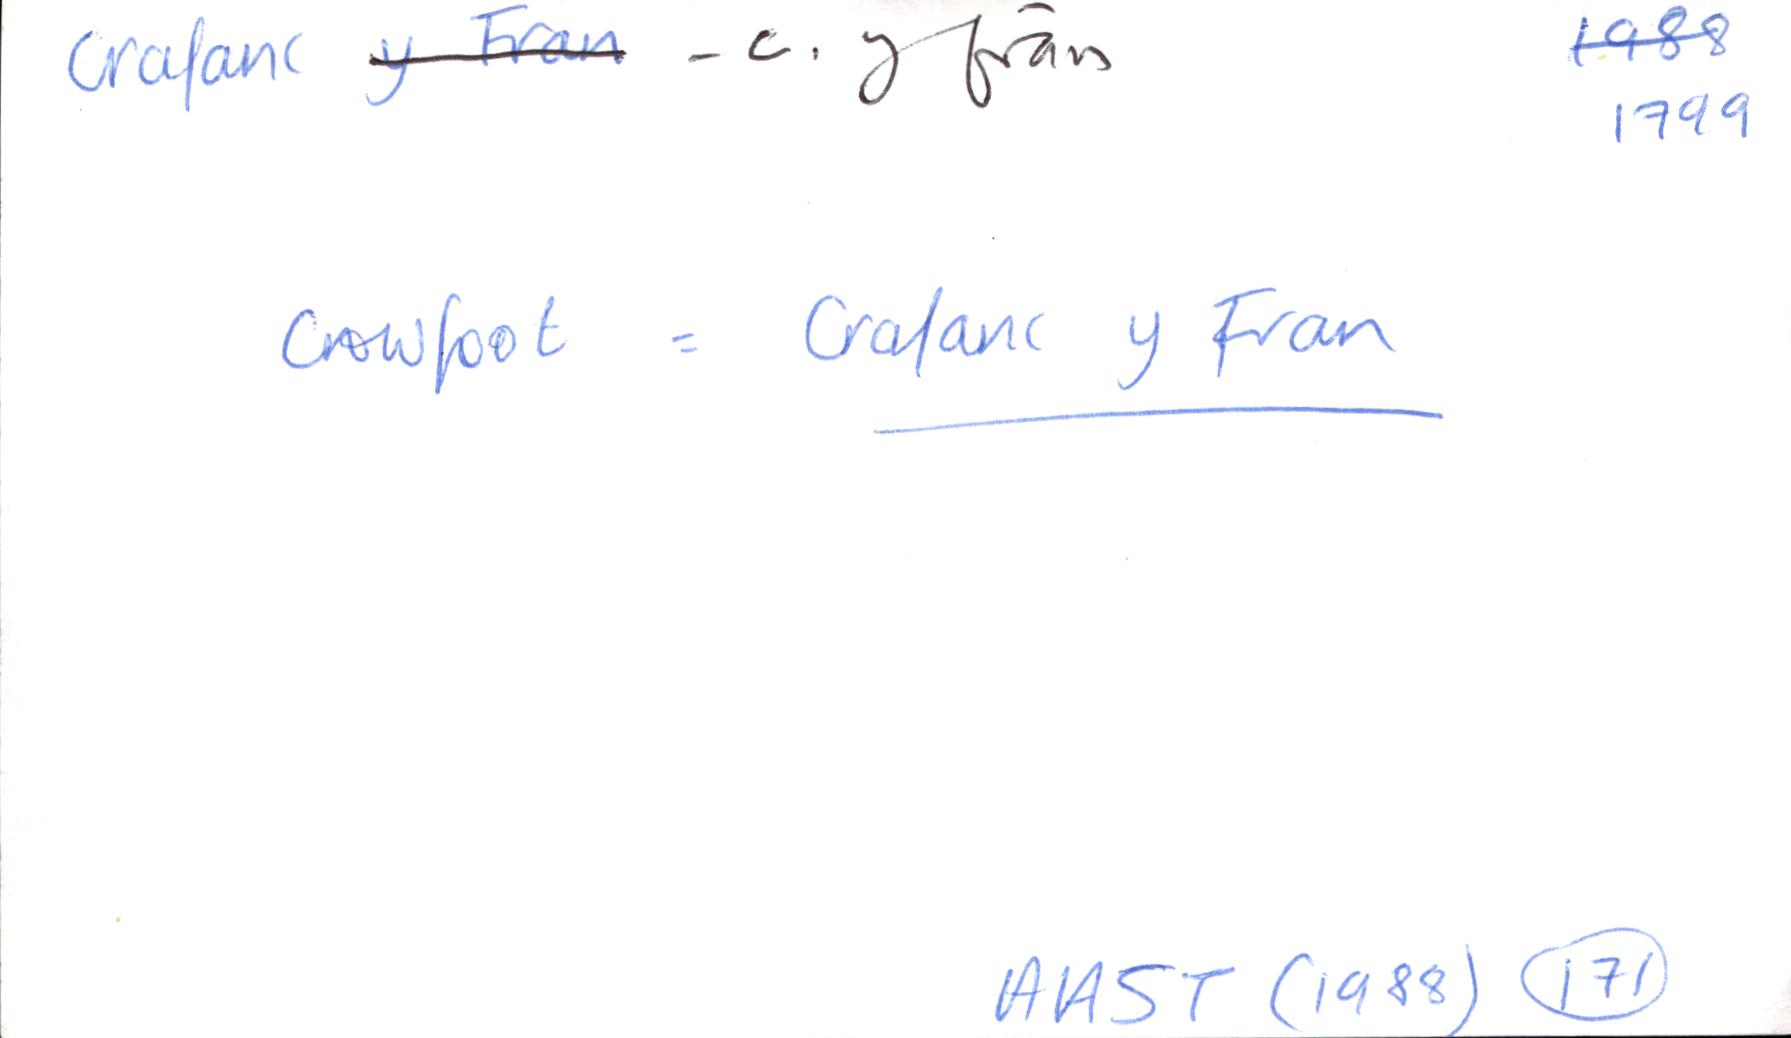 Crafanc y Fran - c. y frân 1988
1799
Crowfoot = Crafanc y Fran
AAST (1988) 171